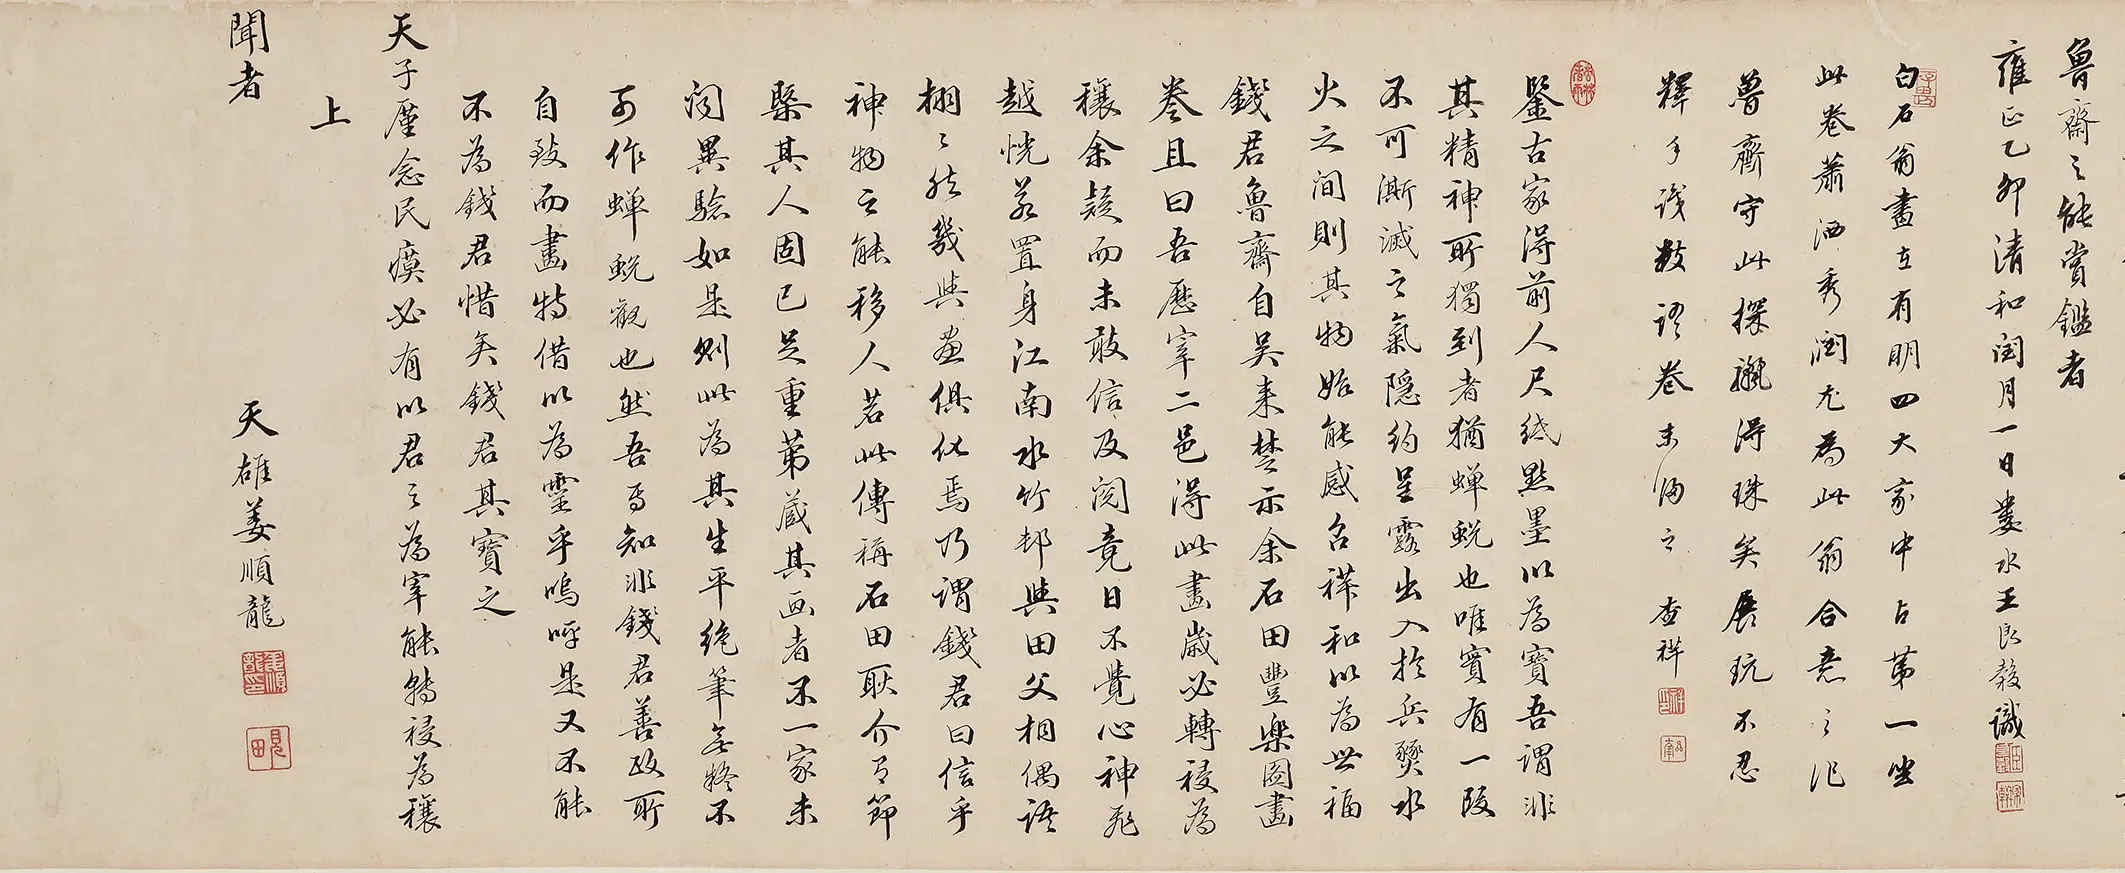 魯齋之能賞鑑者
雍正乙卯清和閏月一日婁水王良穀識
白石翁畫在有明四大家中占第一坐
此卷蕭洒秀潤尤為此翁合意之作
魯齋守此探驪得珠矣展玩不忍
釋手識數語卷末歸之 查祥
鑒古家得前人尺紙點墨以為寶吾謂非
其精神所獨到者猶蟬蛻也唯實有一段
不可澌滅之氣隱約呈露出入於兵燹水
火之間則其物始能感召祥和以為世福
錢君魯齋自吳來楚示余石田豐樂圖畫
卷且曰吾歷宰二邑得此畫歲必轉祲為
穰余疑而未敢信及閱竟日不覺心神飛
越恍若置身江南水竹邨與田父相偶語
栩栩然幾與畫俱化焉乃謂錢君曰信乎
神物之能移人若此傳稱石田耿介有節
槩其人固已足重第藏其画者不一家未
聞異驗如是則此為其生平絶筆無疑不
可作蟬蛻觀也然吾焉知非錢君善政所
自致而畫特借以為靈乎嗚呼是又不能
不為錢君惜矣錢君其寶之
上
天子廑念民瘼必有以君之為宰能轉祲為穰
聞者
天雄姜順龍